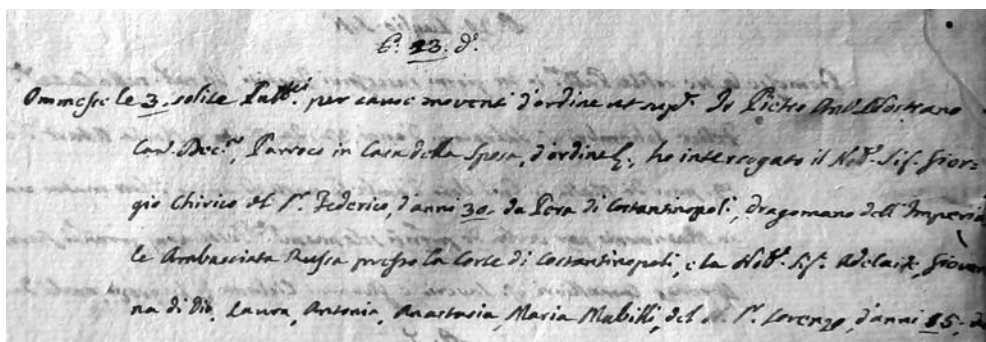 E. 23. d.º
Ommesse le 3. solite Pubb.ni per cause moventi d'ordine ut sup.ª Io Pietro Ant. Nostrano
Can. Dec.no, Parroco in Casa della Sposa, d'ordine &., ho interrogato il Nob. Sig. Gior=
gio Chirico del S.r Federico, d'anni 30. da Pera di Costantinopoli, dragomano dell'Imperia
le Ambasciata Russa presso la Corte di Costantinopoli, e la Nob. Sig. Adelaide, Giovan
na di Dio, Laura, Antonia, Anastasia, Maria Mabilli, del S.r Lorenzo, d'anni 15.